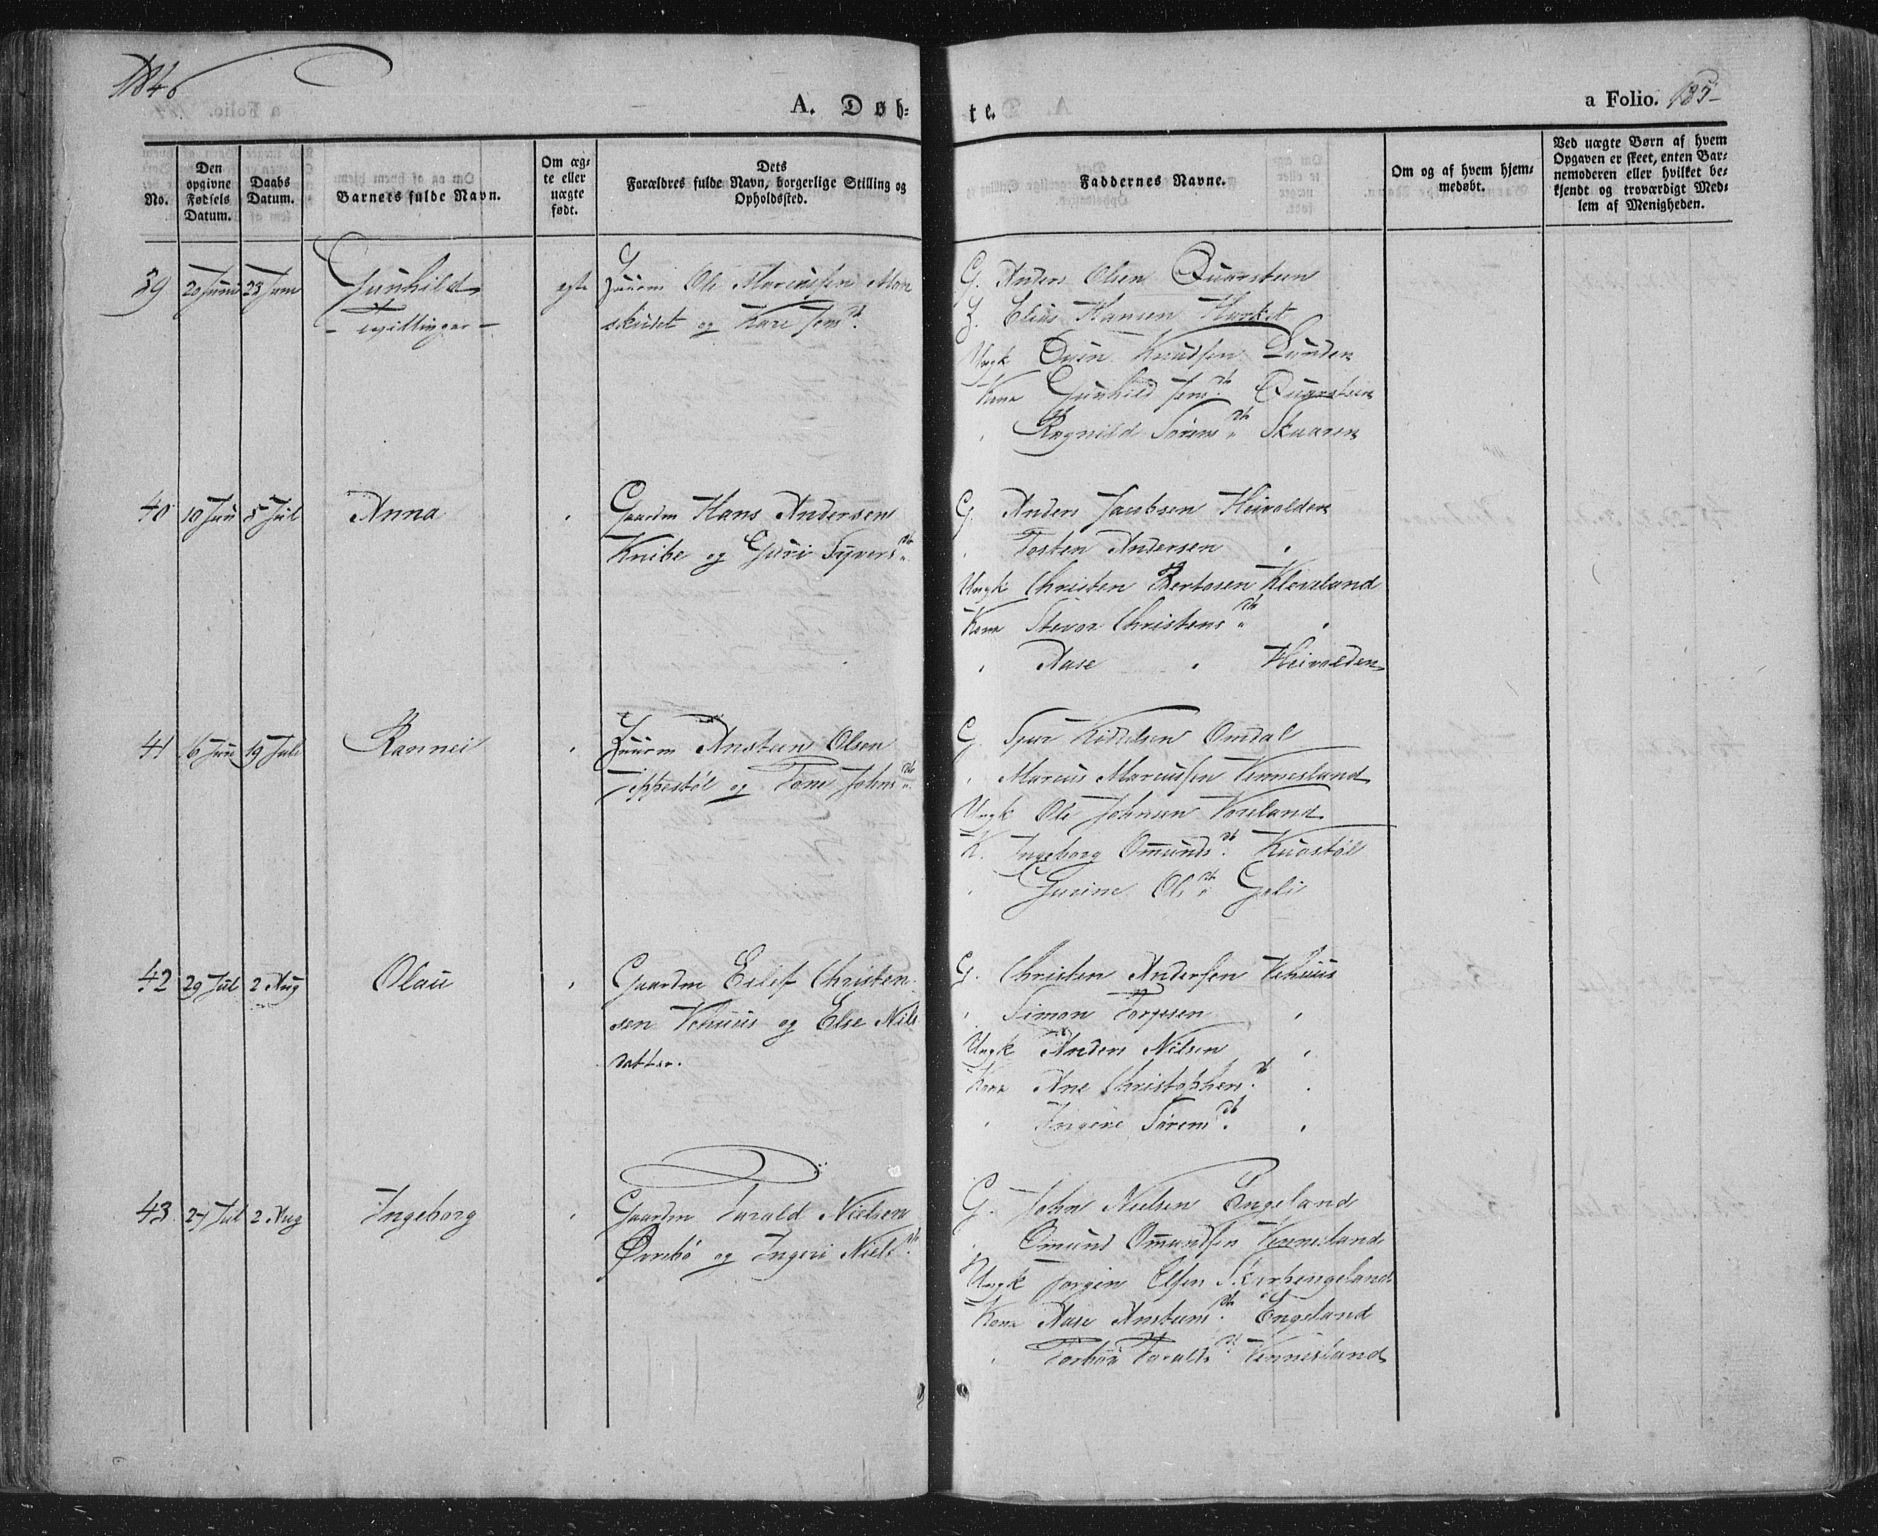 1846
A. Døb-
te.
a Folio. 185
No.
Den opgivne Fødsels Datum.
Daabs Datum.
Barnets fulde Navn.
Om æg-
te eller
uægte
født.
Dets
Forældres fulde Navn, borgerlige Stilling og
Opholdssted.
Faddernes Navne.
Om og af hvem hjem-
medøbt.
Ved uægte Børn af hvem
Opgaven er skeet, enten Bar-
nemoderen eller hvilket be-
kjendt og troværdigt Med-
lem af Menigheden.
39 20 Juni 23 Juni Gunhild egte Huusm Ole Marcussen
- tvillinger -
og Kari Jens dt.
G. Anders Olsen Quarsteen
Elias Hansen
Ungk Sven Knudsen Lunden
Kone Gunhild Jens dt. Quarsteen
" Ragnild Sørens dt. Skaaren
40 10 Jun 5 Jul Anna " Gaardm Hans Andersen
Knibe og Guri Syvers dt.
G. Anders Jacobsen Heivolden
" Tosten Andersen "
Ungk Christen Bertosen Kleveland
Kone Christens dt. "
" Aase " Heivolden
41 6 Jun 19 Juli Rannei " Huusm Ansteen Olsen
Tippestøl og Tone Johns dt.
G. Omdal
" Marcus Marcussen Vennesland
Ungk Ole Johnsen Voreland
K. Ingeborg Omunds dt. Kvastøl
" Gurine Ols dt.
42 29 Jul 2 Aug Olau " Gaardm Eilef Christen-
sen Vehuus og Else Nils
datter.
G. Christen Andersen Vehuus
" Simon Torjesen "
Ungk Anders Nilsen "
Kone Ane Christophers dt. "
" Ingine Sørens dt. "
43 27 Jul 2 Aug Ingeborg " Gaardm Tarald Nielsen
Øvrebø og Ingeri Niels dt.
G. John Nielsen Engeland
" Omund Omundsen Vennesland
Ungk Jørgen Olsen Skarpengeland
Kone Aase Ansteens dt. Engeland
" Torbør Taralds dt. Vennesland